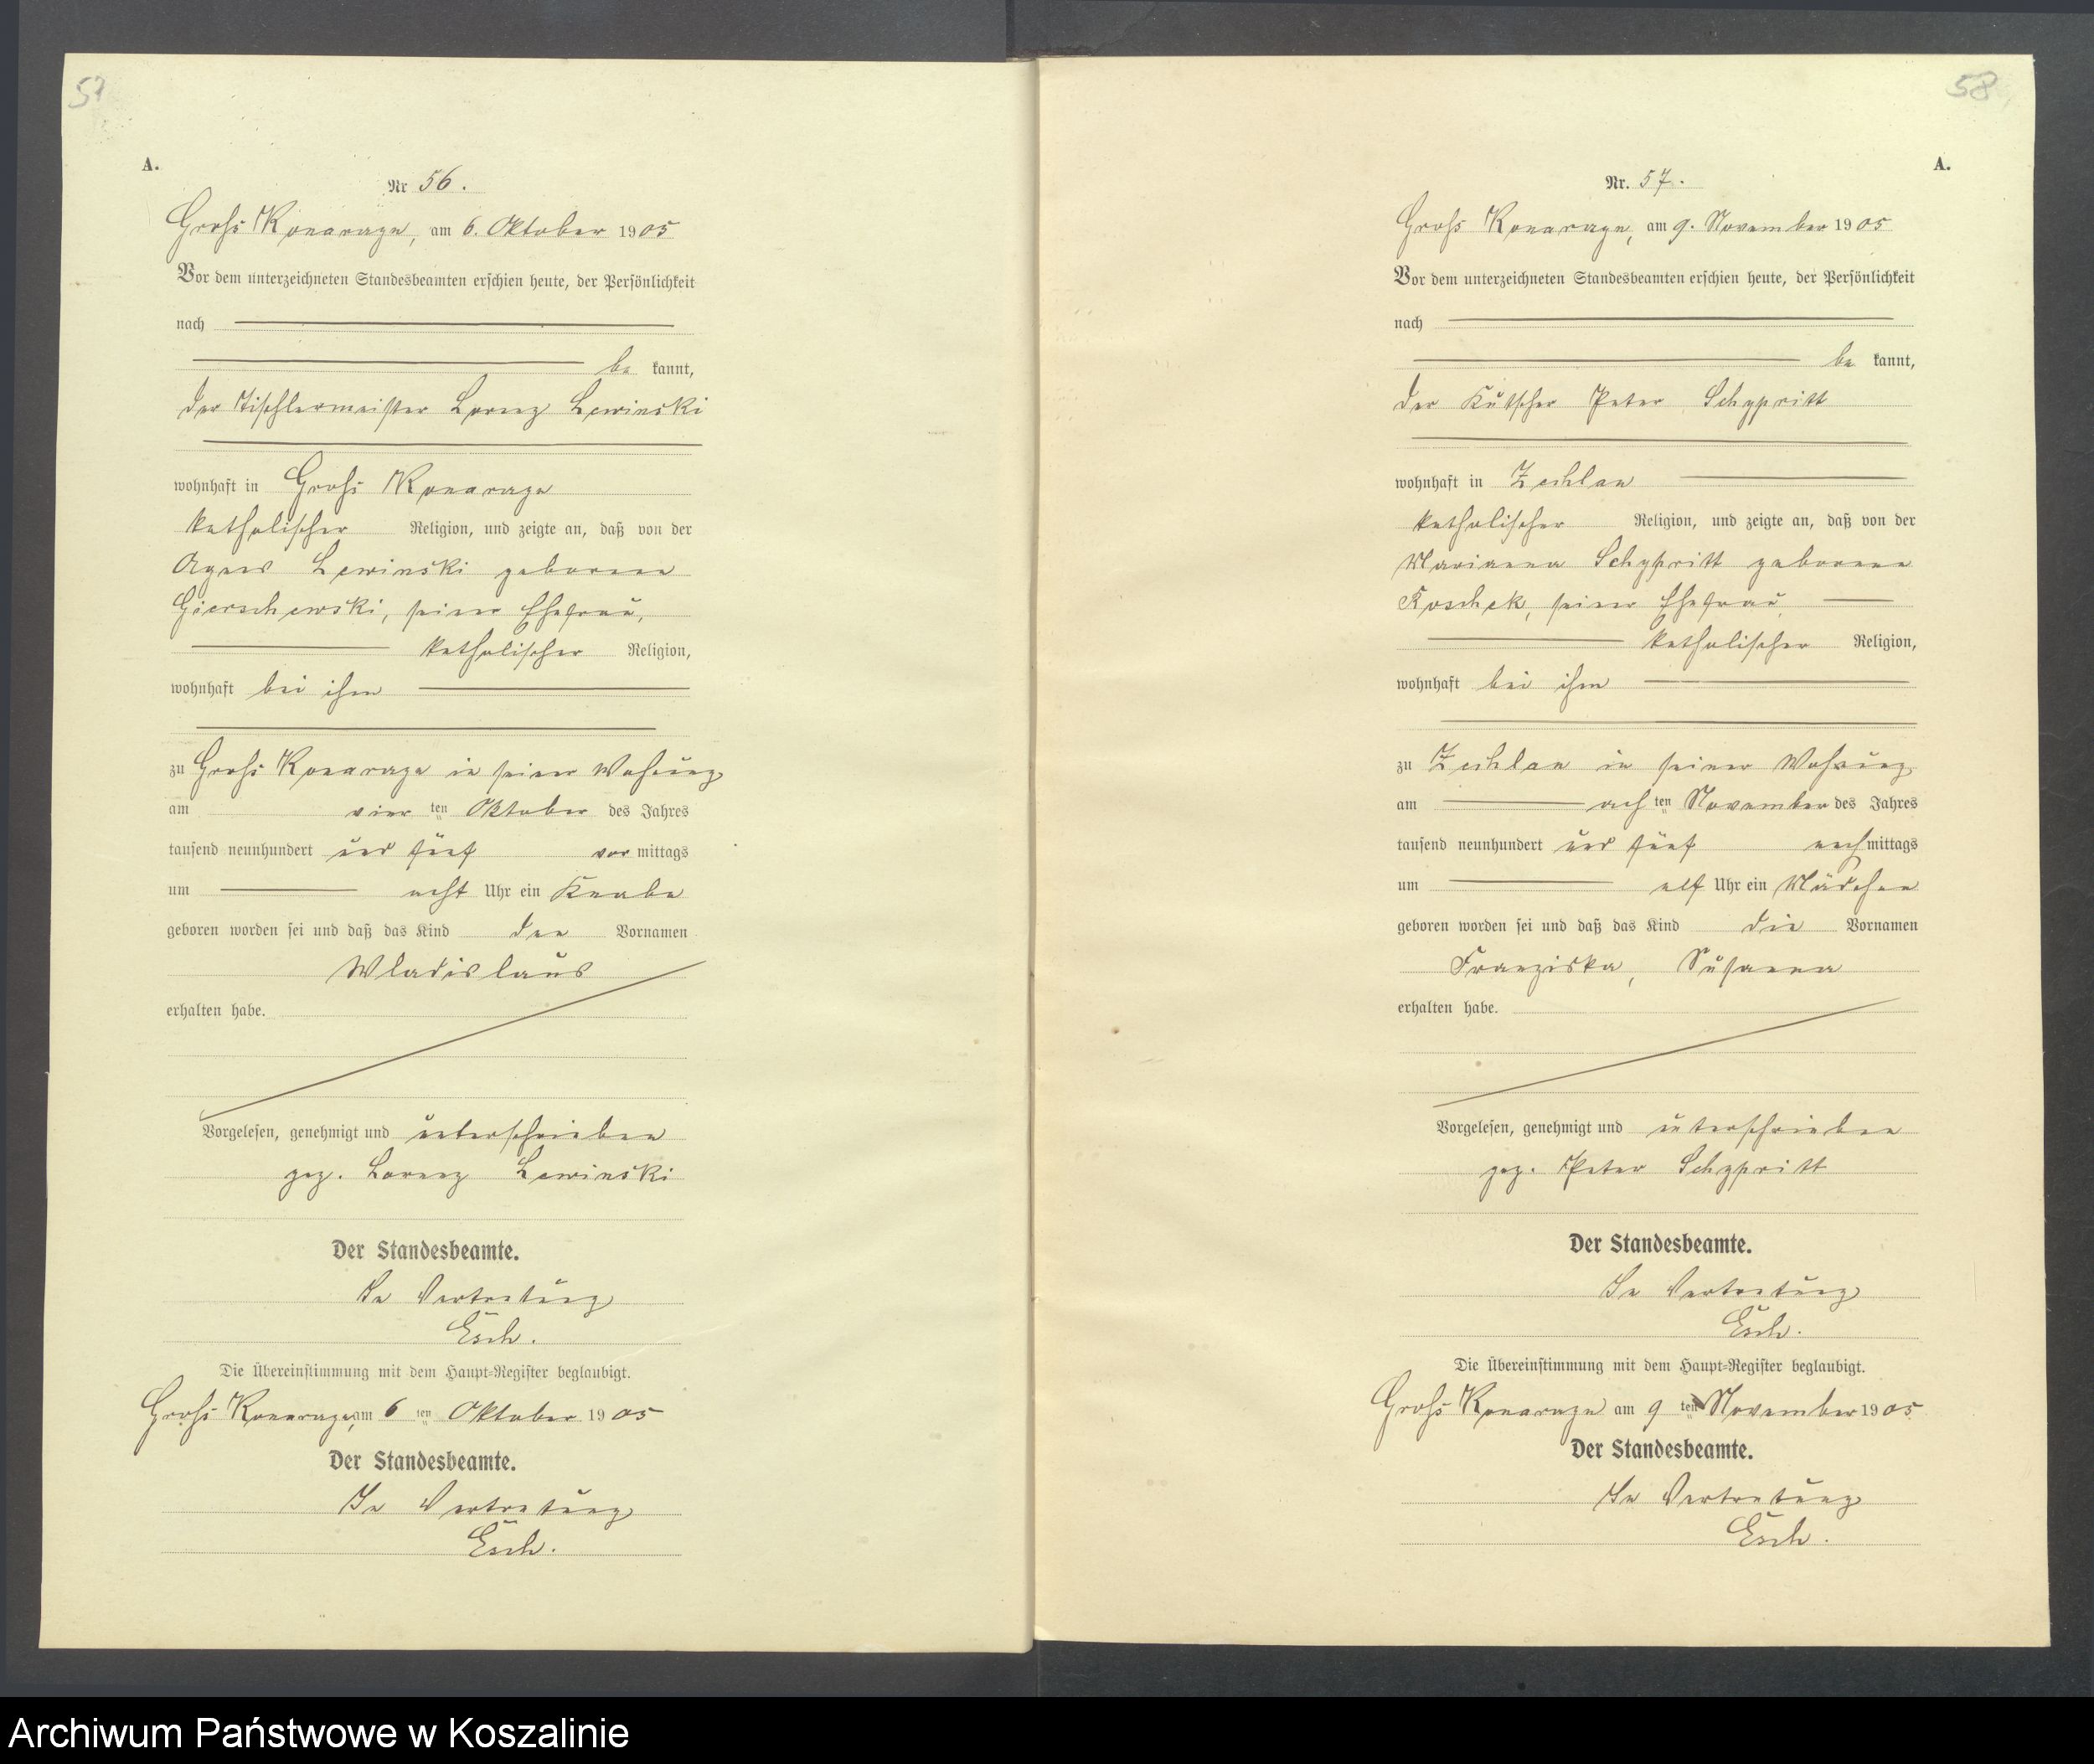 57
A.
Nr 56.
Groß Konarzyn, am 6. Oktober 1905
Vor dem unterzeichneten Standesbeamten erschien heute, der Persönlichkeit
nach
be kannt,
der Tischlermeister Lorenz Lewinski
wohnhaft in Groß Konarzyn
katholischer Religion, und zeigte an, daß von der
Agnes Lewinski geborene
Gierschewski, seiner Ehefrau,
katholischer Religion,
wohnhaft bei ihm
zu Groß Konarzyn in seiner Wohnung
am vier ten Oktober des Jahres
tausend neunhundert und fünf vor mittags
um acht Uhr ein Knabe
geboren worden sei und daß das Kind den Vornamen
Wladislaus
erhalten habe.
Vorgelesen, genehmigt und unterschrieben
gez. Lorenz Lewinski
Der Standesbeamte.
In Vertretung
Esch.
Die Übereinstimmung mit dem Haupt-Register beglaubigt.
Groß Konarzyn, am 6 ten Oktober 1905
Der Standesbeamte.
In Vertretung
Esch.
58
A.
Nr. 57.
Groß Konarzyn, am 9. November 1905
Vor dem unterzeichneten Standesbeamten erschien heute, der Persönlichkeit
nach
be kannt,
der Kutscher Peter Schypritt
wohnhaft in Zechlau
katholischer Religion, und zeigte an, daß von der
Marianna Schypritt geborene
Koschek, seiner Ehefrau
katholischer Religion,
wohnhaft bei ihm
zu Zechlau in seiner Wohnung
am ach ten November des Jahres
tausend neunhundert und fünf nach mittags
um elf Uhr ein Mädchen
geboren worden sei und daß das Kind die Vornamen
Franziska, Susanna
erhalten habe.
Vorgelesen, genehmigt und unterschrieben
gez. Peter Schypritt
Der Standesbeamte.
In Vertretung
Esch.
Die Übereinstimmung mit dem Haupt-Register beglaubigt.
Groß Konarzyn am 9 ten November 1905
Der Standesbeamte.
In Vertretung
Esch.
Archiwum Państwowe w Koszalinie